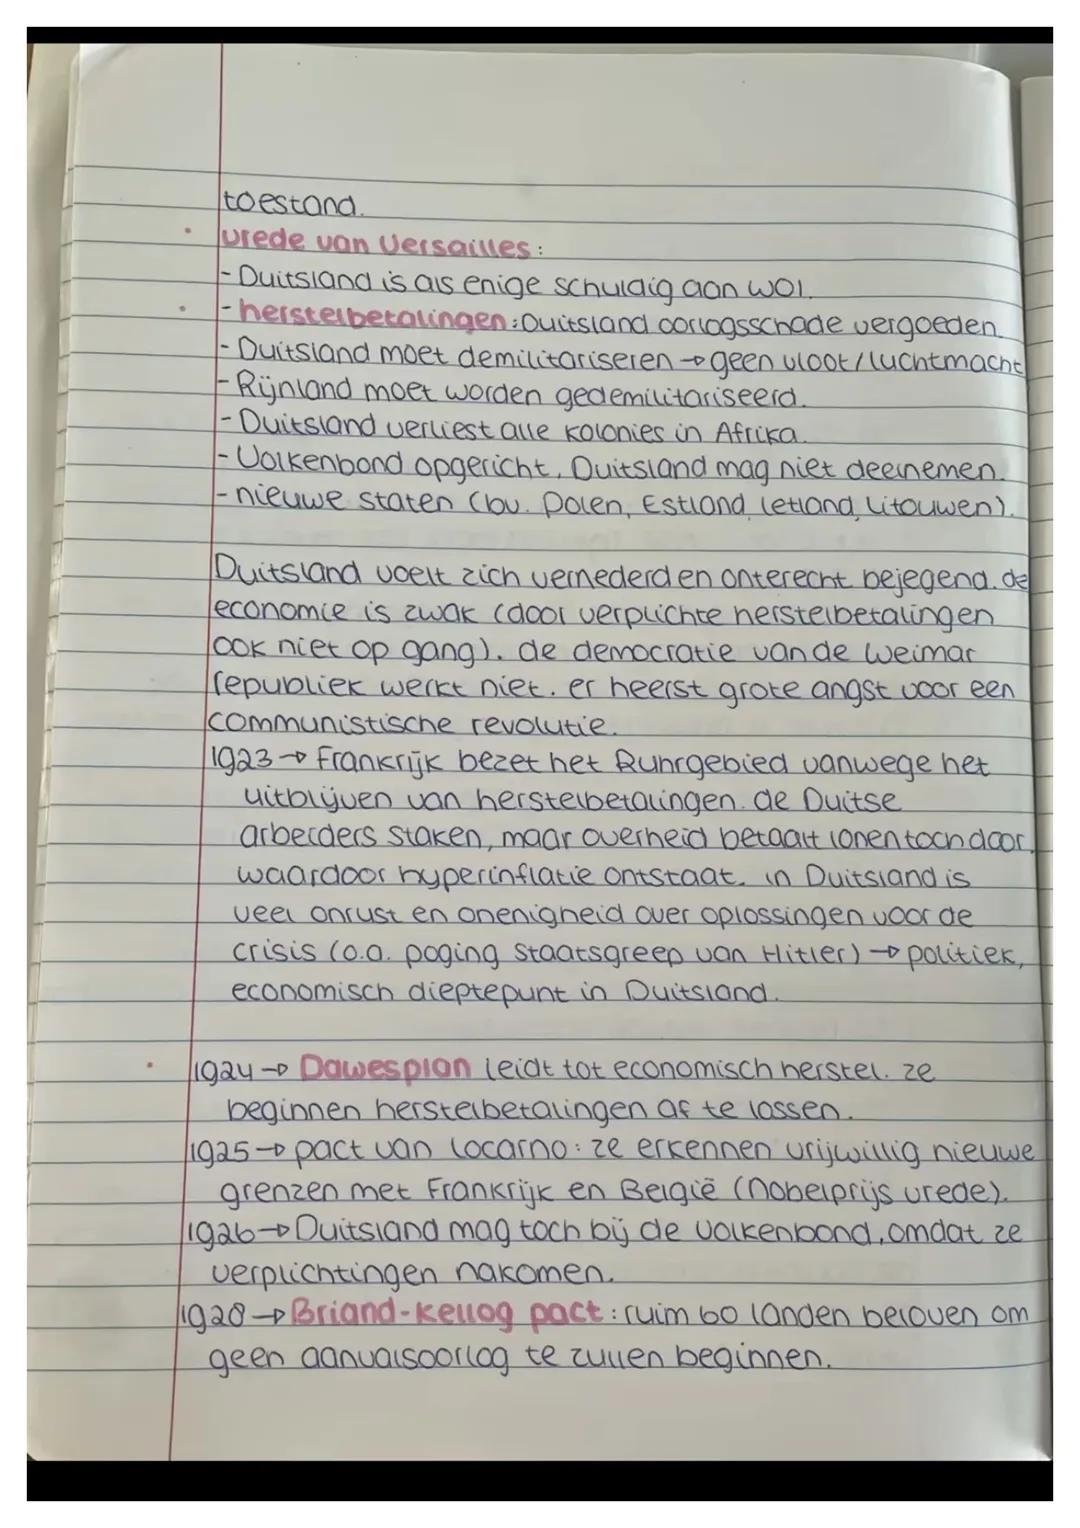 toestand.
• vrede van Versailles:
- Duitsland is als enige schuldig aan WO1.
• - herstelbetalingen: Duitsland oorlogsschade vergoeden.
- Duitsland moet demilitariseren → geen vloot/luchtmacht
- Rijnland moet worden gedemilitariseerd.
- Duitsland verliest alle kolonies in Afrika.
- Volkenbond opgericht, Duitsland mag niet deelnemen.
- nieuwe staten (bv. Polen, Estland, Letland, Litouwen).
Duitsland voelt zich vernederd en onterecht bejegend. de
economie is zwak (door verplichte herstelbetalingen
ook niet op gang). de democratie van de Weimar
republiek werkt niet. er heerst grote angst voor een
communistische revolutie.
1923 → Frankrijk bezet het Ruhrgebied vanwege het
uitblijven van herstelbetalingen. de Duitse
arbeiders staken, maar overheid betaalt lonen toch door,
waardoor hyperinflatie ontstaat. in Duitsland is
veel onrust en onenigheid over oplossingen voor de
crisis (o.a. poging staatsgreep van Hitler) → politiek,
economisch dieptepunt in Duitsland.
• 1924 → Dawesplan leidt tot economisch herstel. ze
beginnen herstelbetalingen af te lossen.
1925 → pact van Locarno: ze erkennen vrijwillig nieuwe
grenzen met Frankrijk en België (nobelprijs vrede).
1926 → Duitsland mag toch bij de Volkenbond, omdat ze
verplichtingen nakomen.
1928 → Briand-Kellog pact: ruim 60 landen beloven om
geen aanvalsoorlog te zullen beginnen.